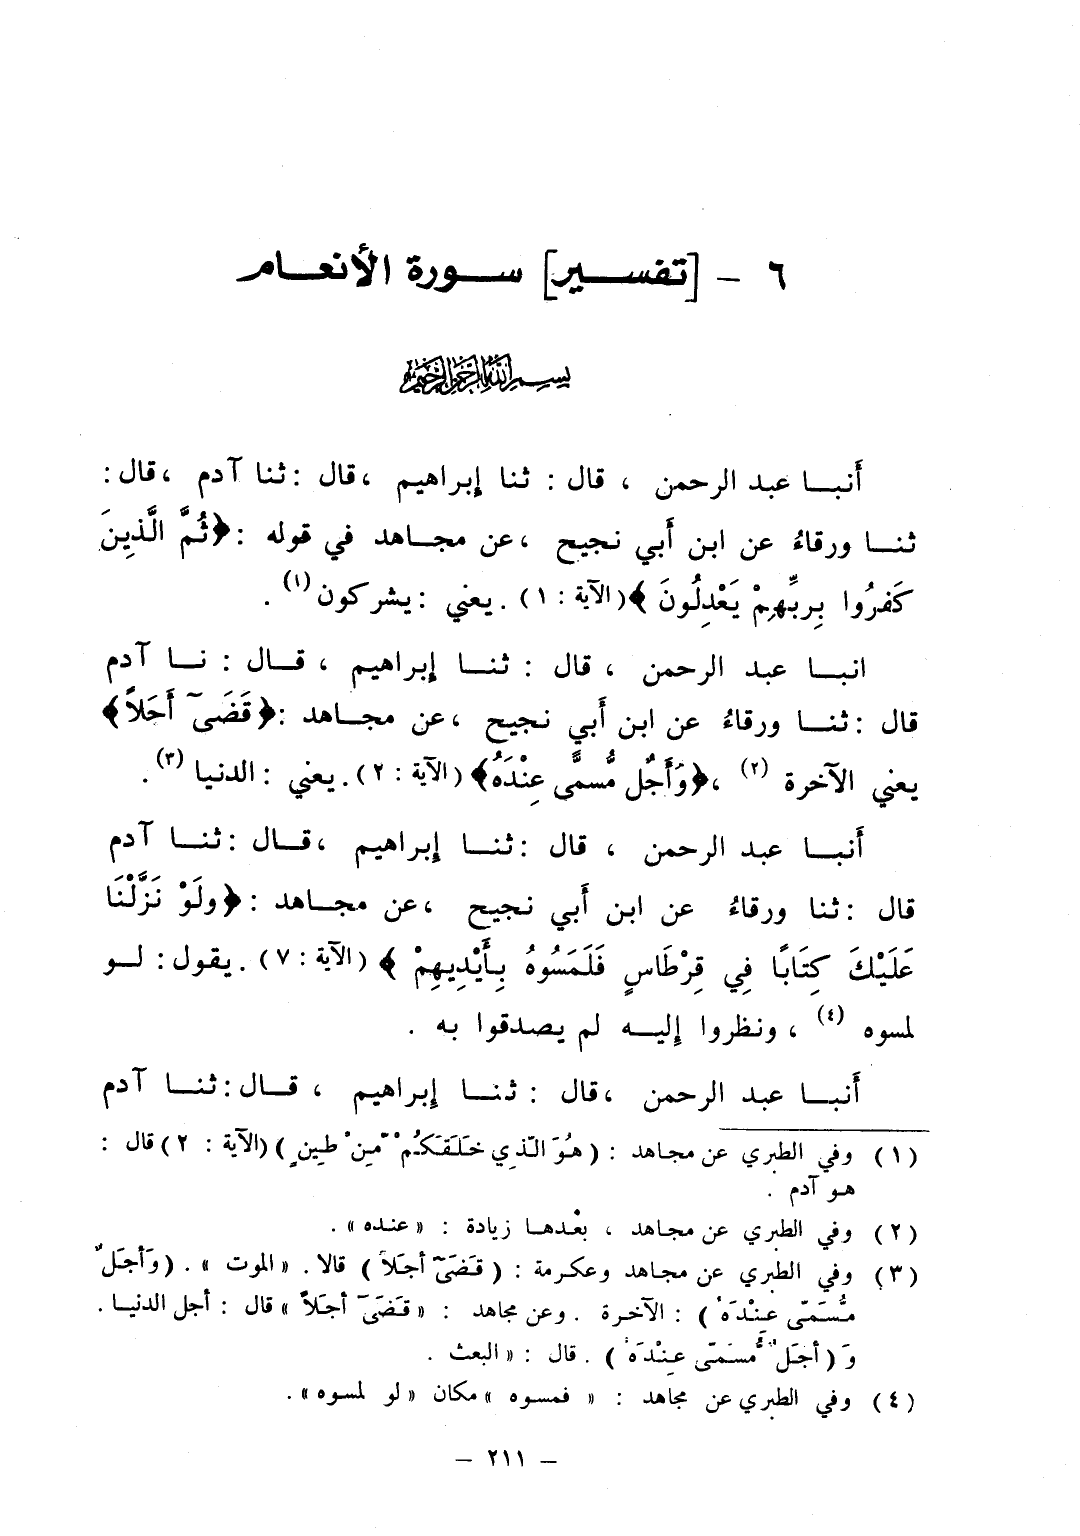 ٦ - [تفسير] سورة الأنعام
بسم الله الرحمن الرحيم
أنبا عبد الرحمن ، قال : ثنا إبراهيم ،قال :ثنا آدم ،قال:
ثنا ورقاءُ عن ابن أبي نجيح ،عن مجاهد في قوله :﴿ثُمَّ الَّذِينَ
كَفَرُوا بِربِّهِمْ يَعْدِلُونَ ﴾(الآية : ١) .يعني :يشركون(١) .
انبا عبد الرحمن ، قال : ثنا إبراهيم ، قال : نا آدم
قال :ثنا ورقاءُ عن ابن أبي نجيح ،عن مجاهد :﴿قَضَىٓ أَجَلاً﴾
يعني الآخرة (٢) ،﴿وَأَجَلٌ مُّسمًّى عِنْدَهُ﴾ (الآية : ٢).يعني :الدنيا (٣).
أنبا عبد الرحمن ، قال :ثنا إبراهيم ،قال :ثنا آدم
قال :ثنا ورقاءُ عن ابن أبي نجيح ،عن مجاهد :﴿ولَوْ نَزَّلْنَا
عَلَيْكَ كِتَابًا فِي قِرْطَاسٍ فَلَمَسُوهُ بِأَيْدِيهِمْ ﴾ (الآية : ٧) .يقول: لو
لمسوه (٤) ، ونظروا إليه لم يصدقوا به .
أنبا عبد الرحمن ،قال : ثنا إبراهيم ، قال:ثنا آدم
(١) وفي الطبري عن مجاهد : (هُوَ الّذِي خَلَقَكُمْ مّنْ طِينٍ)(الآية : ٢)قال :
هو آدم .
(٢) وفي الطبري عن مجاهد ، بعْدها زيادة : «عنده» .
(٣) وفي الطبري عن مجاهد وعكرمة : (قَضَىٓ أجَلاً) قالا. «الموت» . (وَأجَلٌ
مُّسَمّى عِنْدَهُ) : الآخرة . وعن مجاهد : «قَضَىٓ أجَلاً» قال : أجل الدنيا .
وَ (أجَلٌ مُسَمّى عِنْدَهُ) . قال : «البعث .
(٤) وفي الطبري عن مجاهد : «فمسوه» مكان «لو لمسوه» .
- ٢١١ -